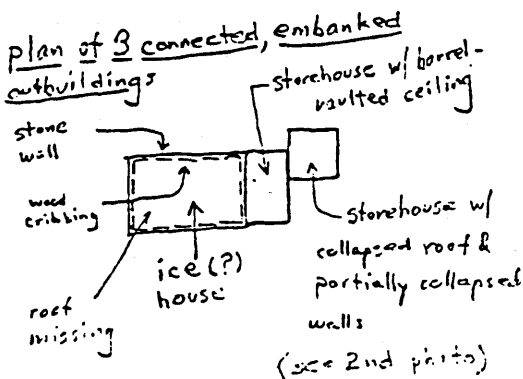 plan of 3 connected, embanked
outbuildings
storehouse w/ barrel-
vaulted ceiling
stone
wall
wood
cribbing
ice(?)
house
roof
missing
storehouse w/
collapsed roof &
partially collapsed
walls
(see 2nd photo)